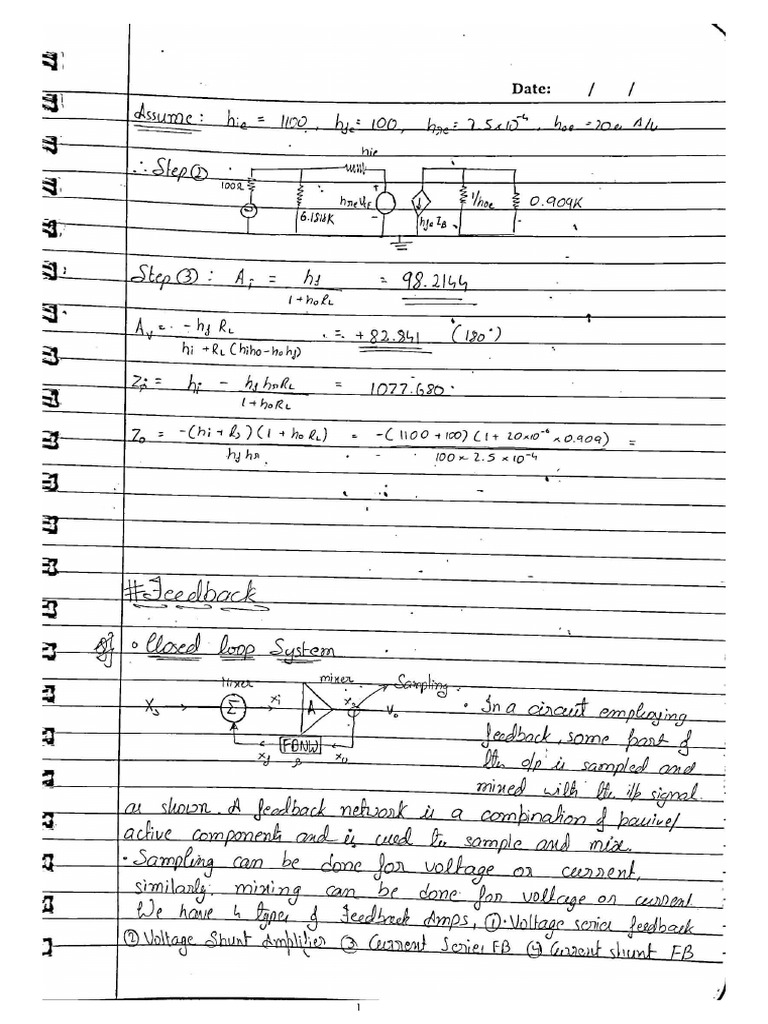 Date: / /
Assume: hie = 1100, hfe = 100, hre = 2.5x10⁻⁴, hoe = 20u A/V
hie
∴ Step②
100Ω
6.1818K
hreVE
hfeIB
1/hoe
0.909K
Step③: Ai = hf / 1+hoRL = 98.2144
Av = -hf RL / hi + RL(hiho-hohf) = +82.841 (180°)
Zi = hi - hf hr RL / 1+hoRL = 1077.680
Zo = -(hi+Rs)(1+hoRL) / hf hr = -(1100+100)(1+20x10⁻⁶x0.909) / 100x2.5x10⁻⁴ =
#Feedback
Q1} • Closed loop System
Mixer
mixer
Sampling
Xs
Σ
xi
A
Vo
FBNW
xf
• In a circuit employing
feedback, some part of
the o/p is sampled and
mixed with the i/p signal
as shown. A feedback network is a combination of passive/
active components and is used to sample and mix.
• Sampling can be done for voltage or current,
similarly mixing can be done for voltage or current
We have 4 types of Feedback Amps, ①. Voltage series feedback
② Voltage Shunt Amplifier ③ Current Series FB ④ Current shunt FB
1